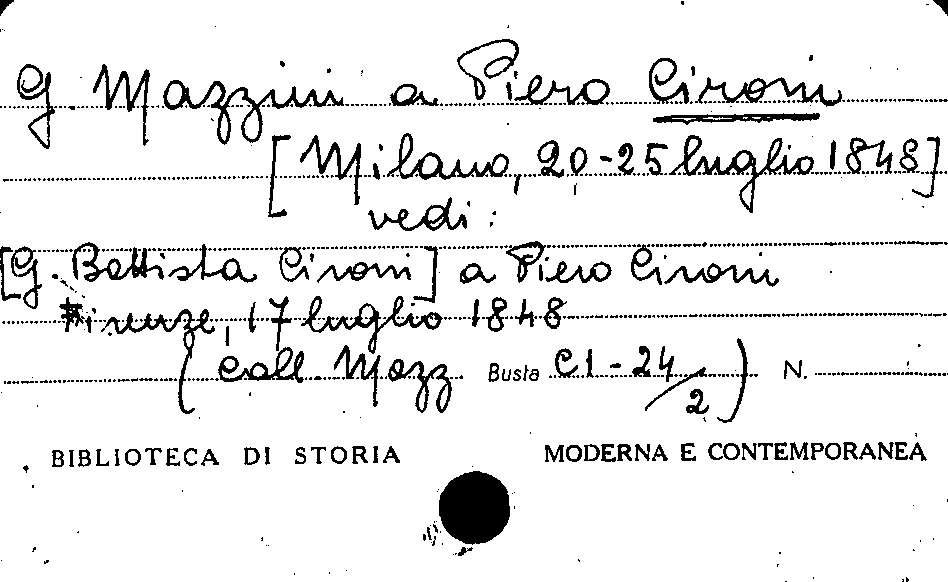 G. Mazzini a Piero Cironi
[Milano, 20-25 luglio 1848]
vedi:
[G. Battista Cironi] a Piero Cironi
Firenze, 17 luglio 1848
(Coll. Mazz. Busta C1-24/2) N.
BIBLIOTECA DI STORIA MODERNA E CONTEMPORANEA